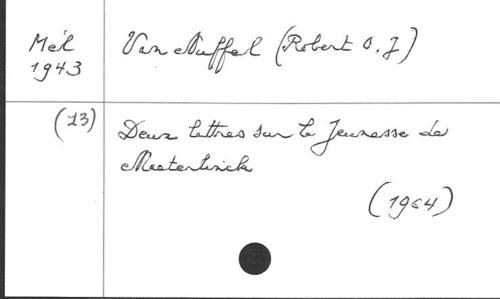 Mél Van Nuffel (Robert O. J)
1943
(13) Deux lettres sur la Jeunesse de
Maeterlinck
(1964)